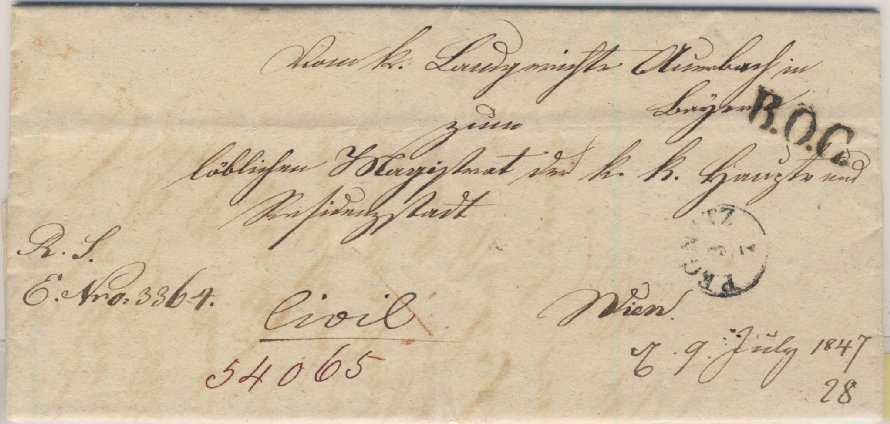 Vom k. Landgerichte Auerbach in
Bayern
B.O.C.
zum
löblichen Magistrat der k. k. Haupt- und
Residenzstadt
PEGNITZ
R. S.
E. Nro. 3364.
Civil
Wien.
54065
9. July 1847
28